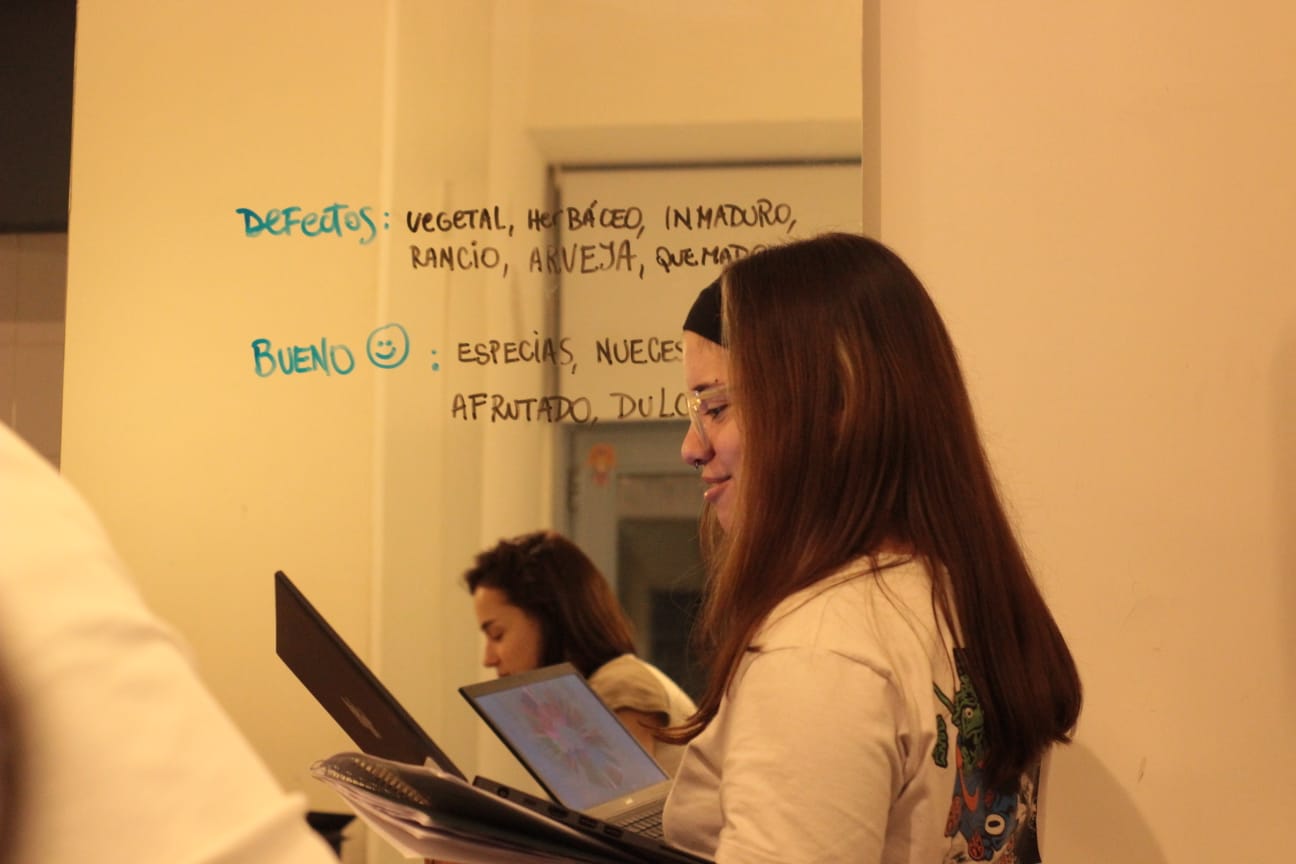 DEFECTOS: VEGETAL, HERBÁCEO, INMADURO,
RANCIO, ARVEJA, QUEMADO
BUENO ☺ : ESPECIAS, NUECES
AFRUTADO,